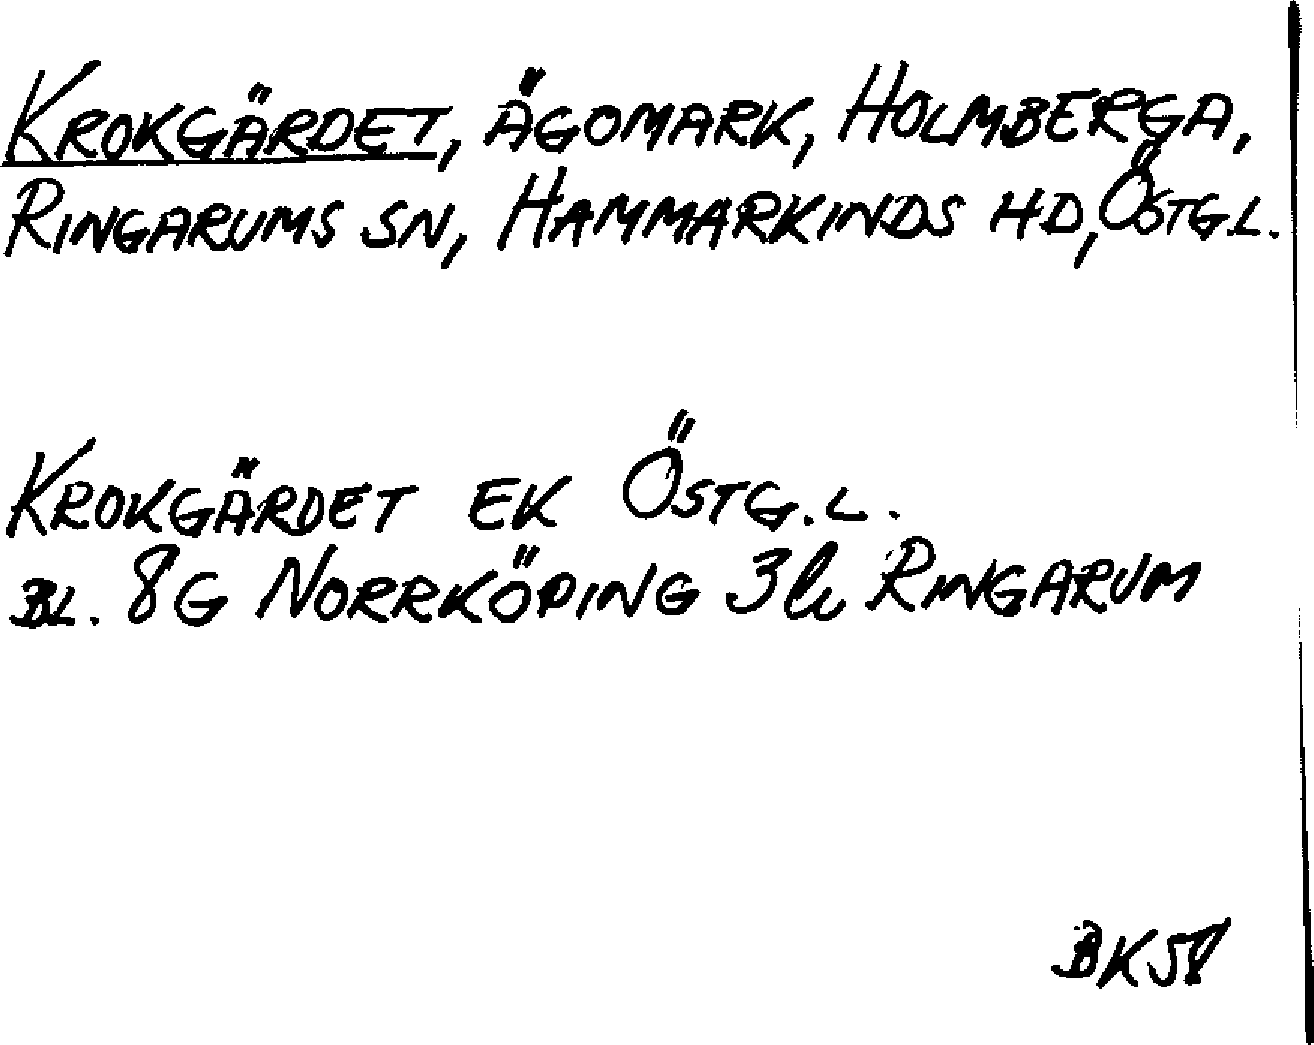 KROKGÄRDET, ÄGOMARK, HOLMBERGA,
RINGARUMS SN, HAMMARKINDS HD, ÖSTG.L.
KROKGÄRDET EK ÖSTG.L.
BL. 8G NORRKÖPING 3h RINGARUM